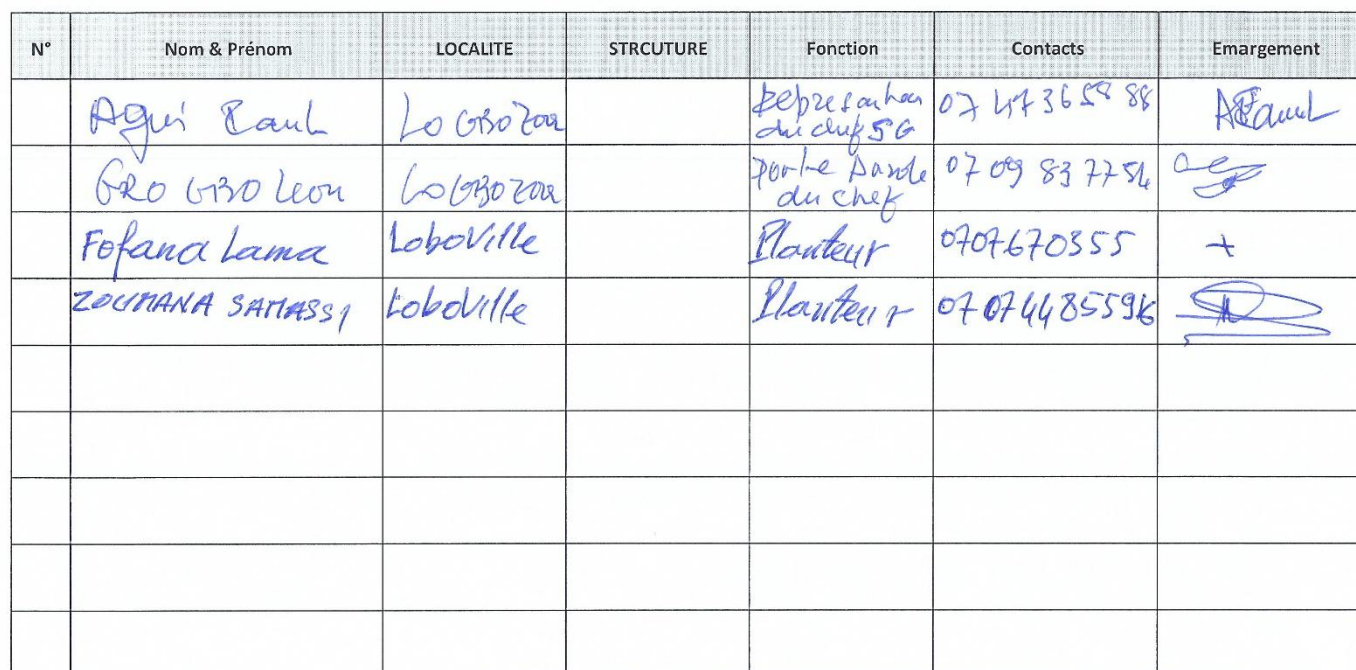 N° Nom & Prénom LOCALITE STRCUTURE Fonction Contacts Emargement
Agui Raul LOGBOZOA Représentan du chef SG 07 47 36 58 88
GROGBO Leon LOGBOZOA Porte Parole du chef 07 09 83 77 54
Fofana Lama LoboVille Planteur 0707670355 +
ZOUMANA SAMASSI LoboVille Planteur